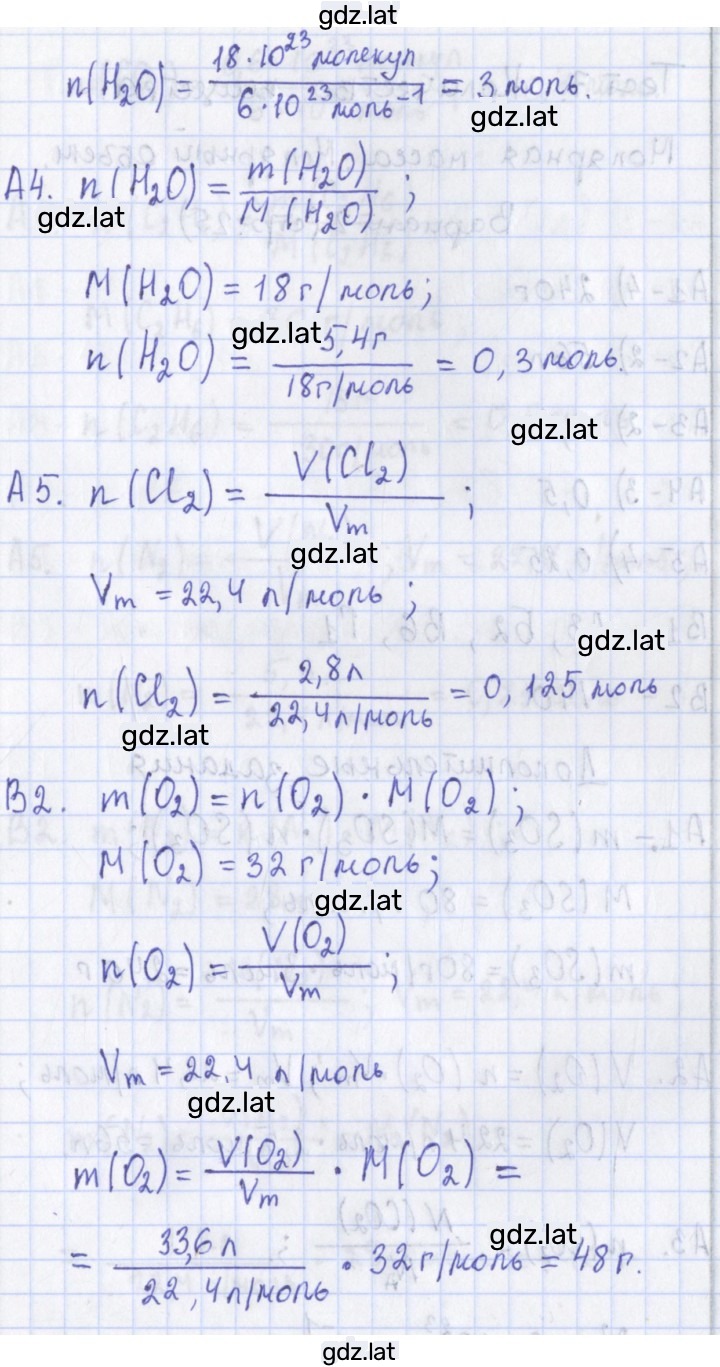 gdz.lat
n(H₂O) = 18·10²³ молекул / 6·10²³ моль⁻¹ = 3 моль.
gdz.lat
A4. n(H₂O) = m(H₂O) / M(H₂O) ;
gdz.lat
M(H₂O) = 18 г/моль;
gdz.lat
n(H₂O) = 5,4г / 18г/моль = 0,3 моль.
gdz.lat
A5. n(Cl₂) = V(Cl₂) / Vm ;
gdz.lat
Vm = 22,4 л/моль ;
gdz.lat
n(Cl₂) = 2,8л / 22,4л/моль = 0,125 моль
gdz.lat
B2. m(O₂) = n(O₂) · M(O₂) ;
M(O₂) = 32 г/моль;
gdz.lat
n(O₂) = V(O₂) / Vm ;
Vm = 22.4 л/моль
gdz.lat
m(O₂) = V(O₂) / Vm · M(O₂) =
gdz.lat
= 33,6 л / 22,4л/моль · 32 г/моль = 48 г.
gdz.lat